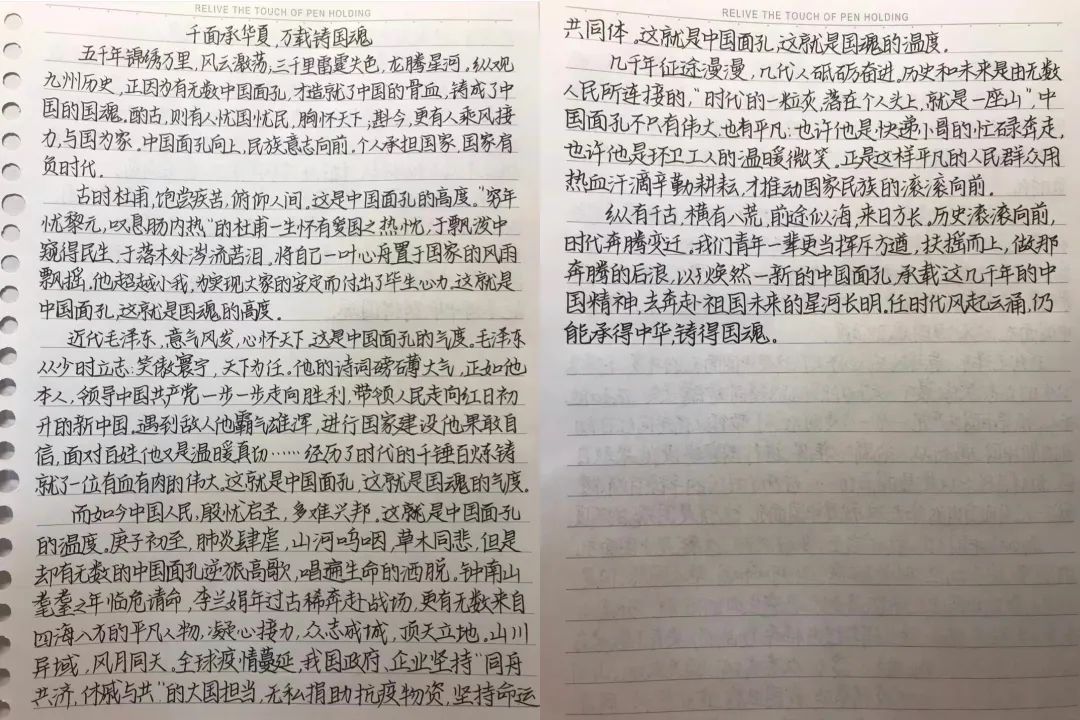 RELIVE THE TOUCH OF PEN HOLDING
千面承华夏，万载铸国魂
五千年锦绣万里，风云激荡，三千里雷霆失色，龙腾星河。纵观
九州历史，正因为有无数中国面孔，才造就了中国的骨血，铸成了中
国的国魂。酌古，则有人忧国忧民，胸怀天下，斟今，更有人乘风接
力，与国为家。中国面孔向上，民族意志向前。个人承担国家，国家肩
负时代。
古时杜甫，饱尝疾苦，俯仰人间。这是中国面孔的高度。“穷年
忧黎元，叹息肠内热”的杜甫一生怀有爱国之热忱，于飘泼中
窥得民生，于落木处涔流苦泪，将自己一叶心舟置于国家的风雨
飘摇。他超越小我，为实现大家的安定而付出了毕生心力。这就是
中国面孔，这就是国魂的高度。
近代毛泽东，意气风发，心怀天下。这是中国面孔的气度。毛泽东
从少时立志：笑傲寰宇，天下为任。他的诗词磅礴大气，正如他
本人，领导中国共产党一步一步走向胜利，带领人民走向红日初
升的新中国。遇到敌人他霸气雄浑，进行国家建设他果敢自
信，面对百姓他又是温暖真切……经历了时代的千锤百炼铸
就了一位有血有肉的伟大。这就是中国面孔，这就是国魂的气度。
而如今中国人民，殷忧启圣，多难兴邦。这就是中国面孔
的温度。庚子初至，肺炎肆虐，山河呜咽，草木同悲，但是
却有无数的中国面孔逆旅高歌，唱遍生命的洒脱。钟南山
耄耋之年临危请命，李兰娟年过古稀奔赴战场，更有无数来自
四海八方的平凡人物，凝心接力，众志成城，顶天立地。山川
异域，风月同天。全球疫情蔓延，我国政府、企业坚持“同舟
共济，休戚与共”的大国担当，无私捐助抗疫物资，坚持命运
RELIVE THE TOUCH OF PEN HOLDING
共同体。这就是中国面孔，这就是国魂的温度。
几千年征途漫漫，几代人砥砺奋进。历史和未来是由无数
人民所连接的，“时代的一粒灰，落在个人头上，就是一座山”，中
国面孔不只有伟大，也有平凡：也许他是快递小哥的忙碌奔走，
也许他是环卫工人的温暖微笑。正是这样平凡的人民群众用
热血汗滴辛勤耕耘，才推动国家民族的滚滚向前。
纵有千古，横有八荒；前途似海，来日方长。历史滚滚向前，
时代奔腾变迁。我们青年一辈更当挥斥方遒，扶摇而上，做那
奔腾的后浪，以于焕然一新的中国面孔，承载这几千年的中
国精神，去奔赴祖国未来的星河长明。任时代风起云涌，仍
能承得中华，铸得国魂。